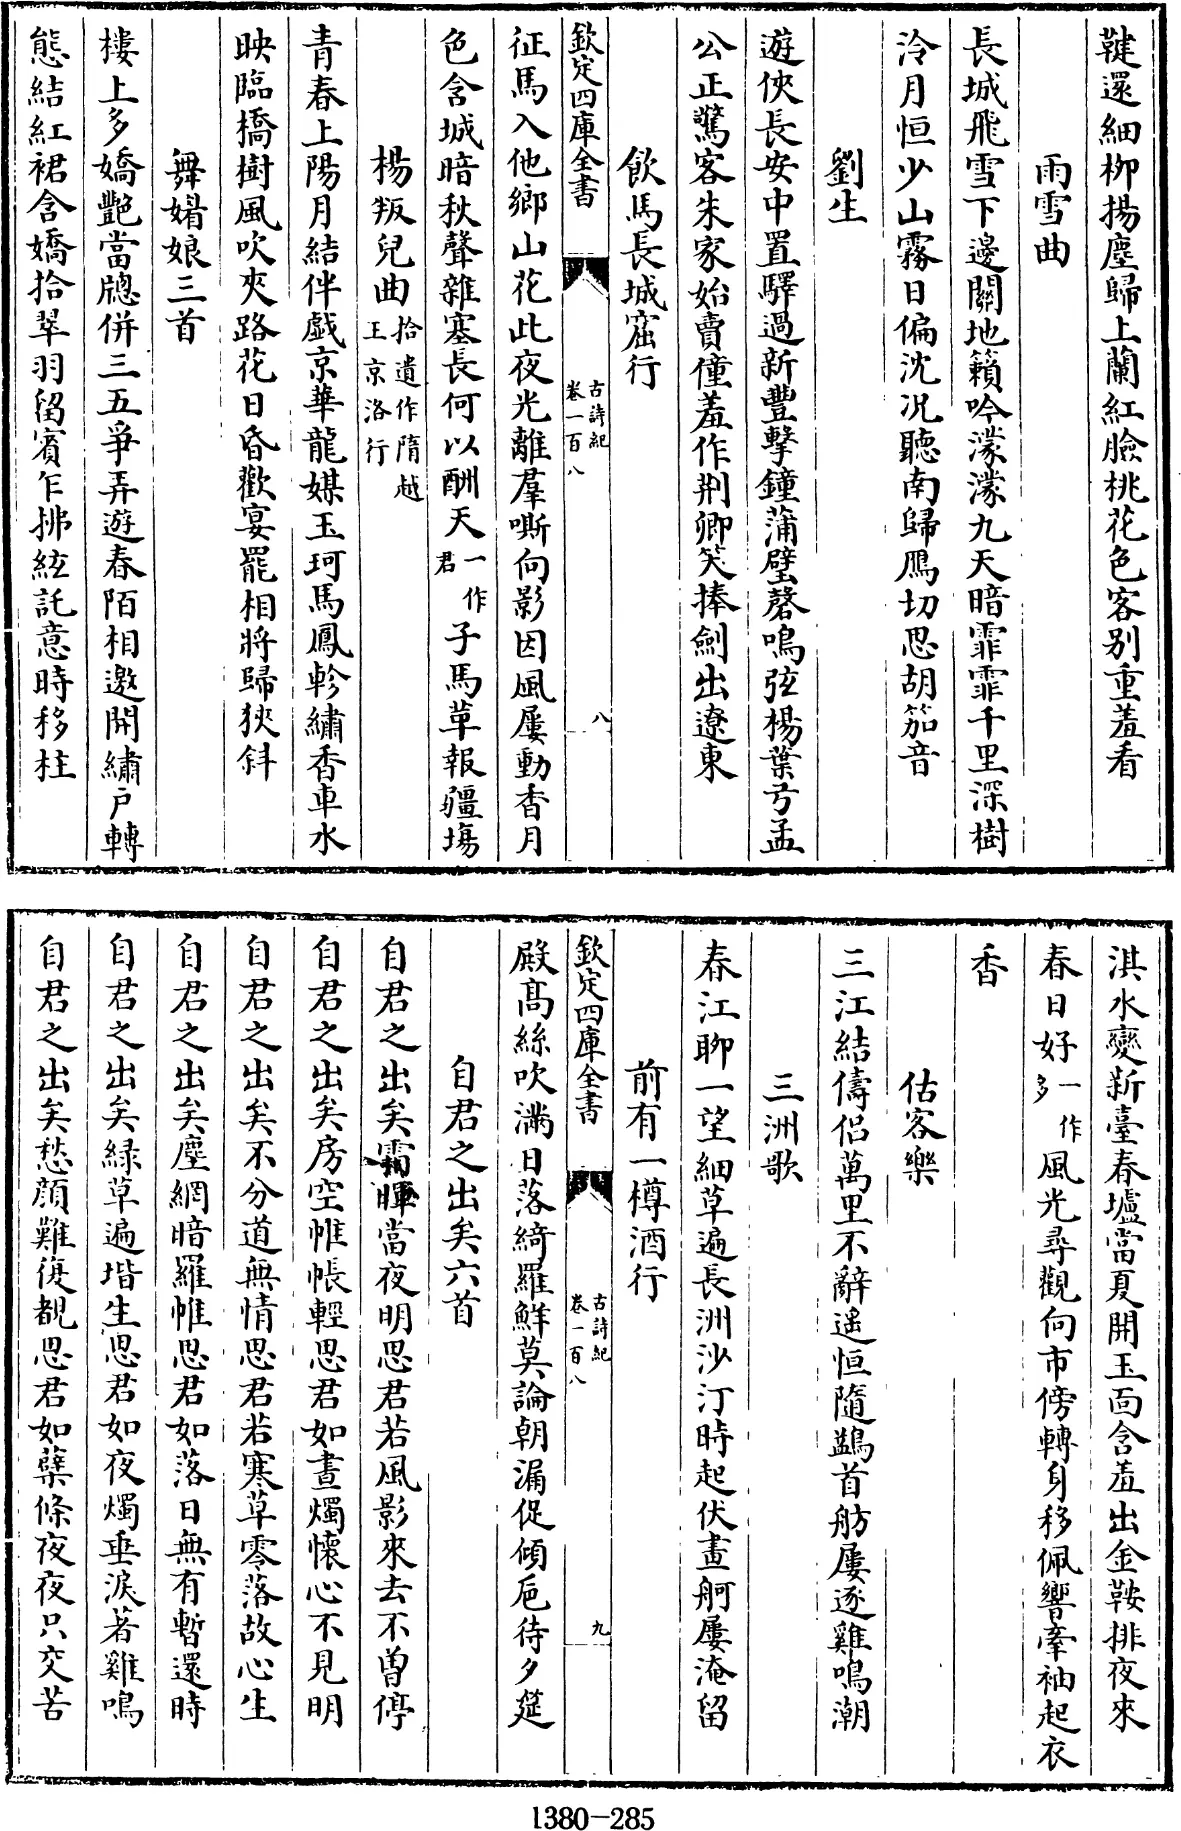 鞬還細柳揚塵歸上蘭紅臉桃花色客别重羞看
雨雪曲
長城飛雪下邊關地籟吟濛濛九天暗霏霏千里深樹
泠月恒少山霧日偏沈况聽南歸鴈切思胡笳音
劉生
遊俠長安中置驛過新豐擊鐘蒲璧磬鳴弦楊葉弓孟
公正驚客朱家始賣僮羞作荆卿笑捧劍出遼東
飲馬長城窟行
欽定四庫全書
古詩紀
卷一百八
八
征馬入他鄉山花此夜光離羣嘶向影因風屢動香月
色含城暗秋聲雜塞長何以酬天一作君子馬革報疆埸
楊叛兒曲拾遺作隋越王京洛行
青春上陽月結伴戲京華龍媒玉珂馬鳳軫繡香車水
映臨橋樹風吹夾路花日昏歡宴罷相將歸狹斜
舞媚娘三首
樓上多嬌艷當牕併三五爭弄遊春陌相邀開繡户轉
態結紅裙含嬌拾翠羽留賓乍拂絃託意時移柱
淇水變新臺春壚當夏開玉面含羞出金鞍排夜來
春日好一作多風光尋觀向市傍轉身移佩響牽袖起衣
香
估客樂
三江結儔侣萬里不辭遥恒隨鷁首舫屢逐雞鳴潮
三洲歌
春江聊一望細草遍長洲沙汀時起伏畫舸屢淹留
前有一樽酒行
欽定四庫全書
古詩紀
卷一百八
九
殿髙絲吹滿日落綺羅鮮莫論朝漏促傾卮待夕筵
自君之出矣六首
自君之出矣霜暉當夜明思君若風影來去不曾停
自君之出矣房空帷帳輕思君如晝燭懷心不見明
自君之出矣不分道無情思君若寒草零落故心生
自君之出矣塵網暗羅帷思君如落日無有暫還時
自君之出矣緑草遍堦生思君如夜燭垂淚著雞鳴
自君之出矣愁顔難復覩思君如蘖條夜夜只交苦
1380-285